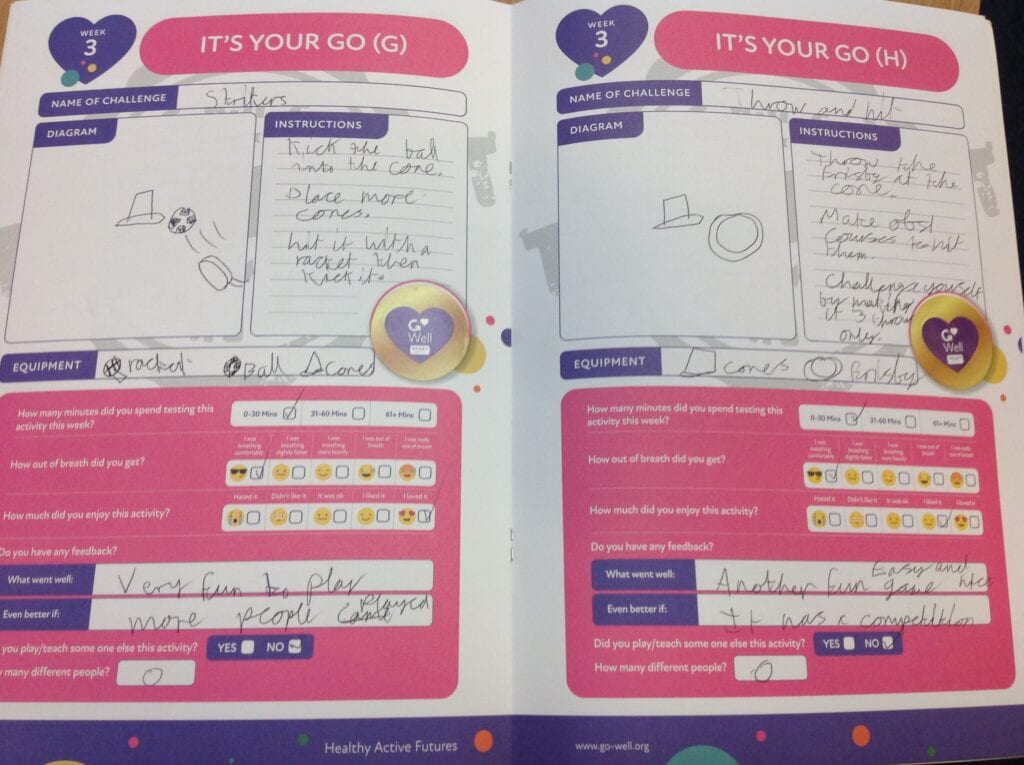 WEEK
3
IT'S YOUR GO (G)
NAME OF CHALLENGE Strikers
DIAGRAM
INSTRUCTIONS
Kick the ball
into the cone.
Place more
cones.
hit it with a
racket then
kick it.
GO
Well
EQUIPMENT racket Ball cones
How many minutes did you spend testing this
activity this week?
0-30 Mins 31-60 Mins 61+ Mins
I was breathing comfortably I was breathing slightly faster I was breathing more heavily I was out of breath I was really out of breath
How out of breath did you get?
Hated it Didn't like it It was ok I liked it I loved it
How much did you enjoy this activity?
Do you have any feedback?
What went well: Very fun to play
Even better if: more people played
you play/teach some one else this activity? YES NO
many different people? 0
Healthy Active Futures
WEEK
3
IT'S YOUR GO (H)
NAME OF CHALLENGE Throw and hit
DIAGRAM
INSTRUCTIONS
Throw the
frisby at the
cone.
Make obst
courses to hit
them.
Challenge yourself
by making
it 3 throw
only.
GO
Well
EQUIPMENT cones frisby
How many minutes did you spend testing this
activity this week?
0-30 Mins 31-60 Mins 61+ Mins
I was breathing comfortably I was breathing slightly faster I was breathing more heavily I was out of breath I was really out of breath
How out of breath did you get?
Hated it Didn't like it It was ok I liked it I loved it
How much did you enjoy this activity?
Do you have any feedback?
What went well: Another fun game Easy and nice
Even better if: It has a competition
Did you play/teach some one else this activity? YES NO
How many different people? 0
www.go-well.org